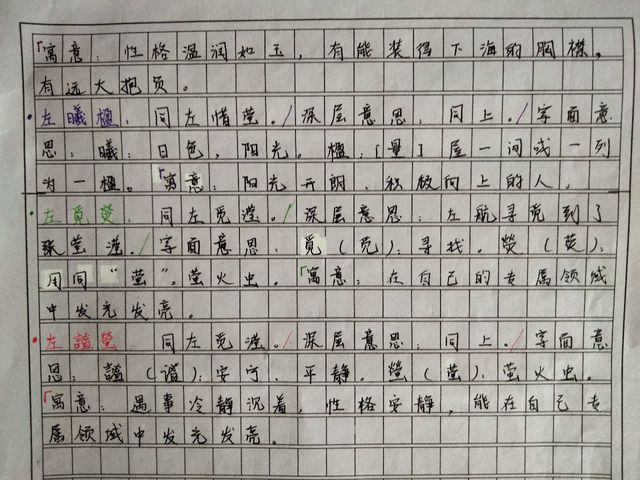 「寓意：性格温润如玉，有能装得下海的胸襟，
有远大抱负。
·左曦楹：同左惜滢。/深层意思：同上。/字面意
思：曦：日色，阳光。楹：[量]屋一间或一列
为一楹。「寓意：阳光开朗、积极向上的人。
·左覓熒：同左觅滢。/深层意思：左航寻觅到了
张莹滢。/字面意思：覓（觅）：寻找。熒（荧）：
用同“萤”。萤火虫。「寓意：在自己的专属领域
中发光发亮。
·左謐螢：同左觅滢。/深层意思：同上。/字面意
思：謐（谧）：安宁、平静。螢（萤）：萤火虫。
「寓意：遇事冷静沉着，性格安静，能在自己专
属领域中发光发亮。